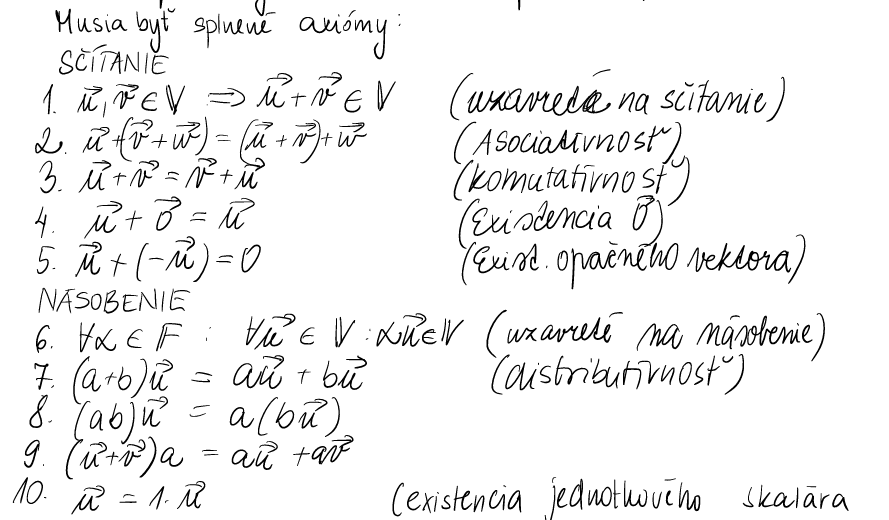 Musia byť splnené axiómy:
SČÍTANIE
1. u⃗, v⃗ ∈ V ⇒ u⃗ + v⃗ ∈ V (uzavreté na sčítanie)
2. u⃗ + (v⃗ + w⃗) = (u⃗ + v⃗) + w⃗ (Asociatívnosť)
3. u⃗ + v⃗ = v⃗ + u⃗ (komutatívnosť)
4. u⃗ + 0⃗ = u⃗ (Existencia 0⃗)
5. u⃗ + (-u⃗) = 0 (Exist. opačného vektora)
NÁSOBENIE
6. ∀α ∈ F : ∀u⃗ ∈ V : αu⃗ ∈ V (uzavreté na násobenie)
7. (a+b)u⃗ = au⃗ + bu⃗ (distributívnosť)
8. (ab)u⃗ = a(bu⃗)
9. (u⃗+v⃗)a = au⃗ + av⃗
10. u⃗ = 1. u⃗ (existencia jednotkového skalára